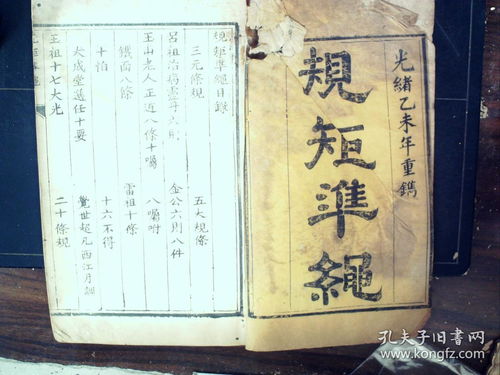 光緒乙未年重鐫
規矩準繩
規矩準繩目錄
三元條規 五大規條
呂祖治病靈符六則 金公六則八件
王山老人正近八條十囑 八囑咐
鐵面八條 雷祖十條
十怕 十六不得
大成堂蒞任十要 覺世超凡西江月調
王祖十七大光 二十條規
孔夫子旧书网
www.kongfz.com